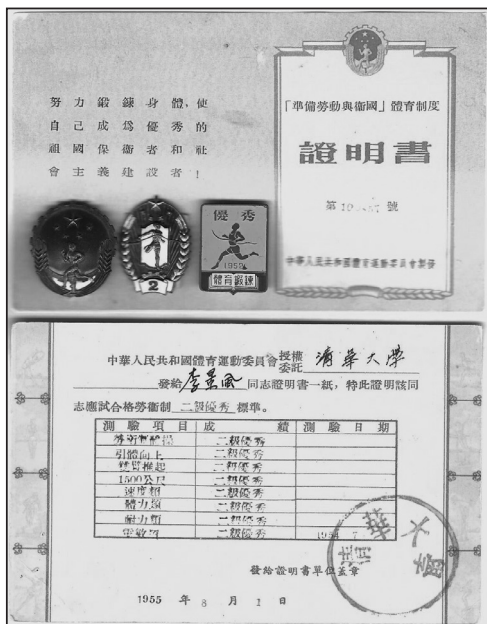 努力鍛鍊身體,使
自己成爲優秀的
祖國保衞者和社
會主義建設者!
「準備勞動與衞國」體育制度
證明書
第 號
中華人民共和國體育運動委員會製發
2
優秀
1959
體育鍛鍊
中華人民共和國體育運動委員會 授權委託 清華大學
發給李景風同志證明書一紙,特此證明該同
志應試合格勞衞制 二級優秀 標準。
測驗項目 成績 測驗日期
二級優秀
引體向上 二級優秀
雙臂推起 二級優秀
1500公尺 二級優秀
速度類 二級優秀
體力類 二級優秀
耐力類 二級優秀
靈敏類 二級優秀
清華大學
發給證明書單位蓋章
1955 年 8 月 1 日